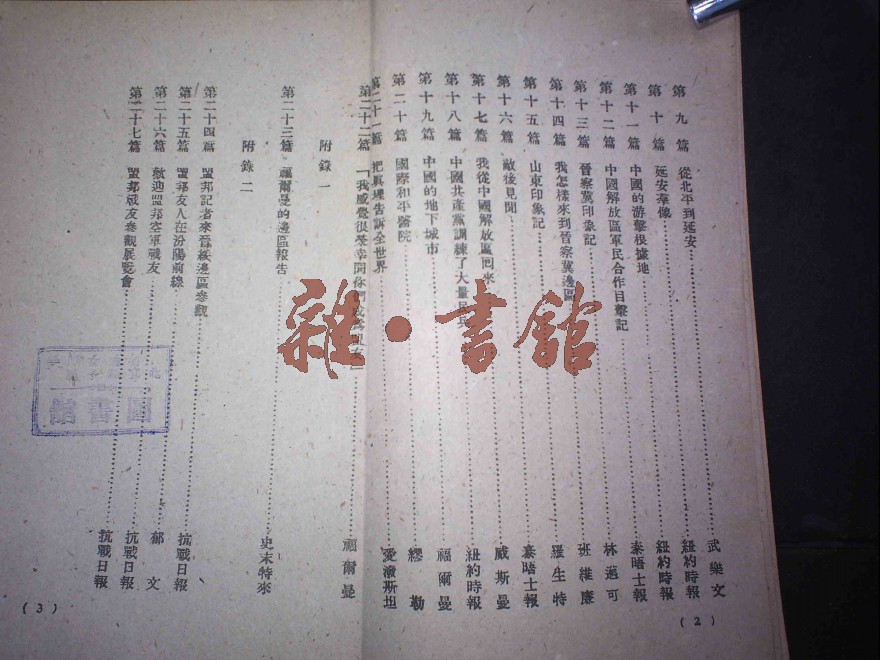 第九篇 從北平到延安 武樂文
第十篇 延安羣像 紐約時報
第十一篇 中國的游擊根據地 紐約時報
第十二篇 中國解放區軍民合作目擊記 泰晤士報
第十三篇 晉察冀印象記 林邁可
第十四篇 我怎樣來到晉察冀邊區 班維廉
第十五篇 山東印象記 羅生特
第十六篇 敵後見聞 泰晤士報
第十七篇 我從中國解放區回來 威斯曼
第十八篇 中國共產黨訓練了大量民兵 紐約時報
第十九篇 中國的地下城市 福爾曼
第二十篇 國際和平醫院 繆勒
第二十一篇 把真理告訴全世界 愛潑斯坦
(2)
第二十二篇 「我感覺很榮幸同你們成爲 福爾曼
附錄一
第二十三篇 福爾曼的邊區報告 史末特來
附錄二
第二十四篇 盟邦記者來晉綏邊區參觀 抗戰日報
第二十五篇 盟邦友人在汾陽前線 郁文
第二十六篇 歡迎盟邦空軍戰友 抗戰日報
第二十七篇 盟邦戰友參觀展覽會 抗戰日報
(3)
圖書館
雜·書館